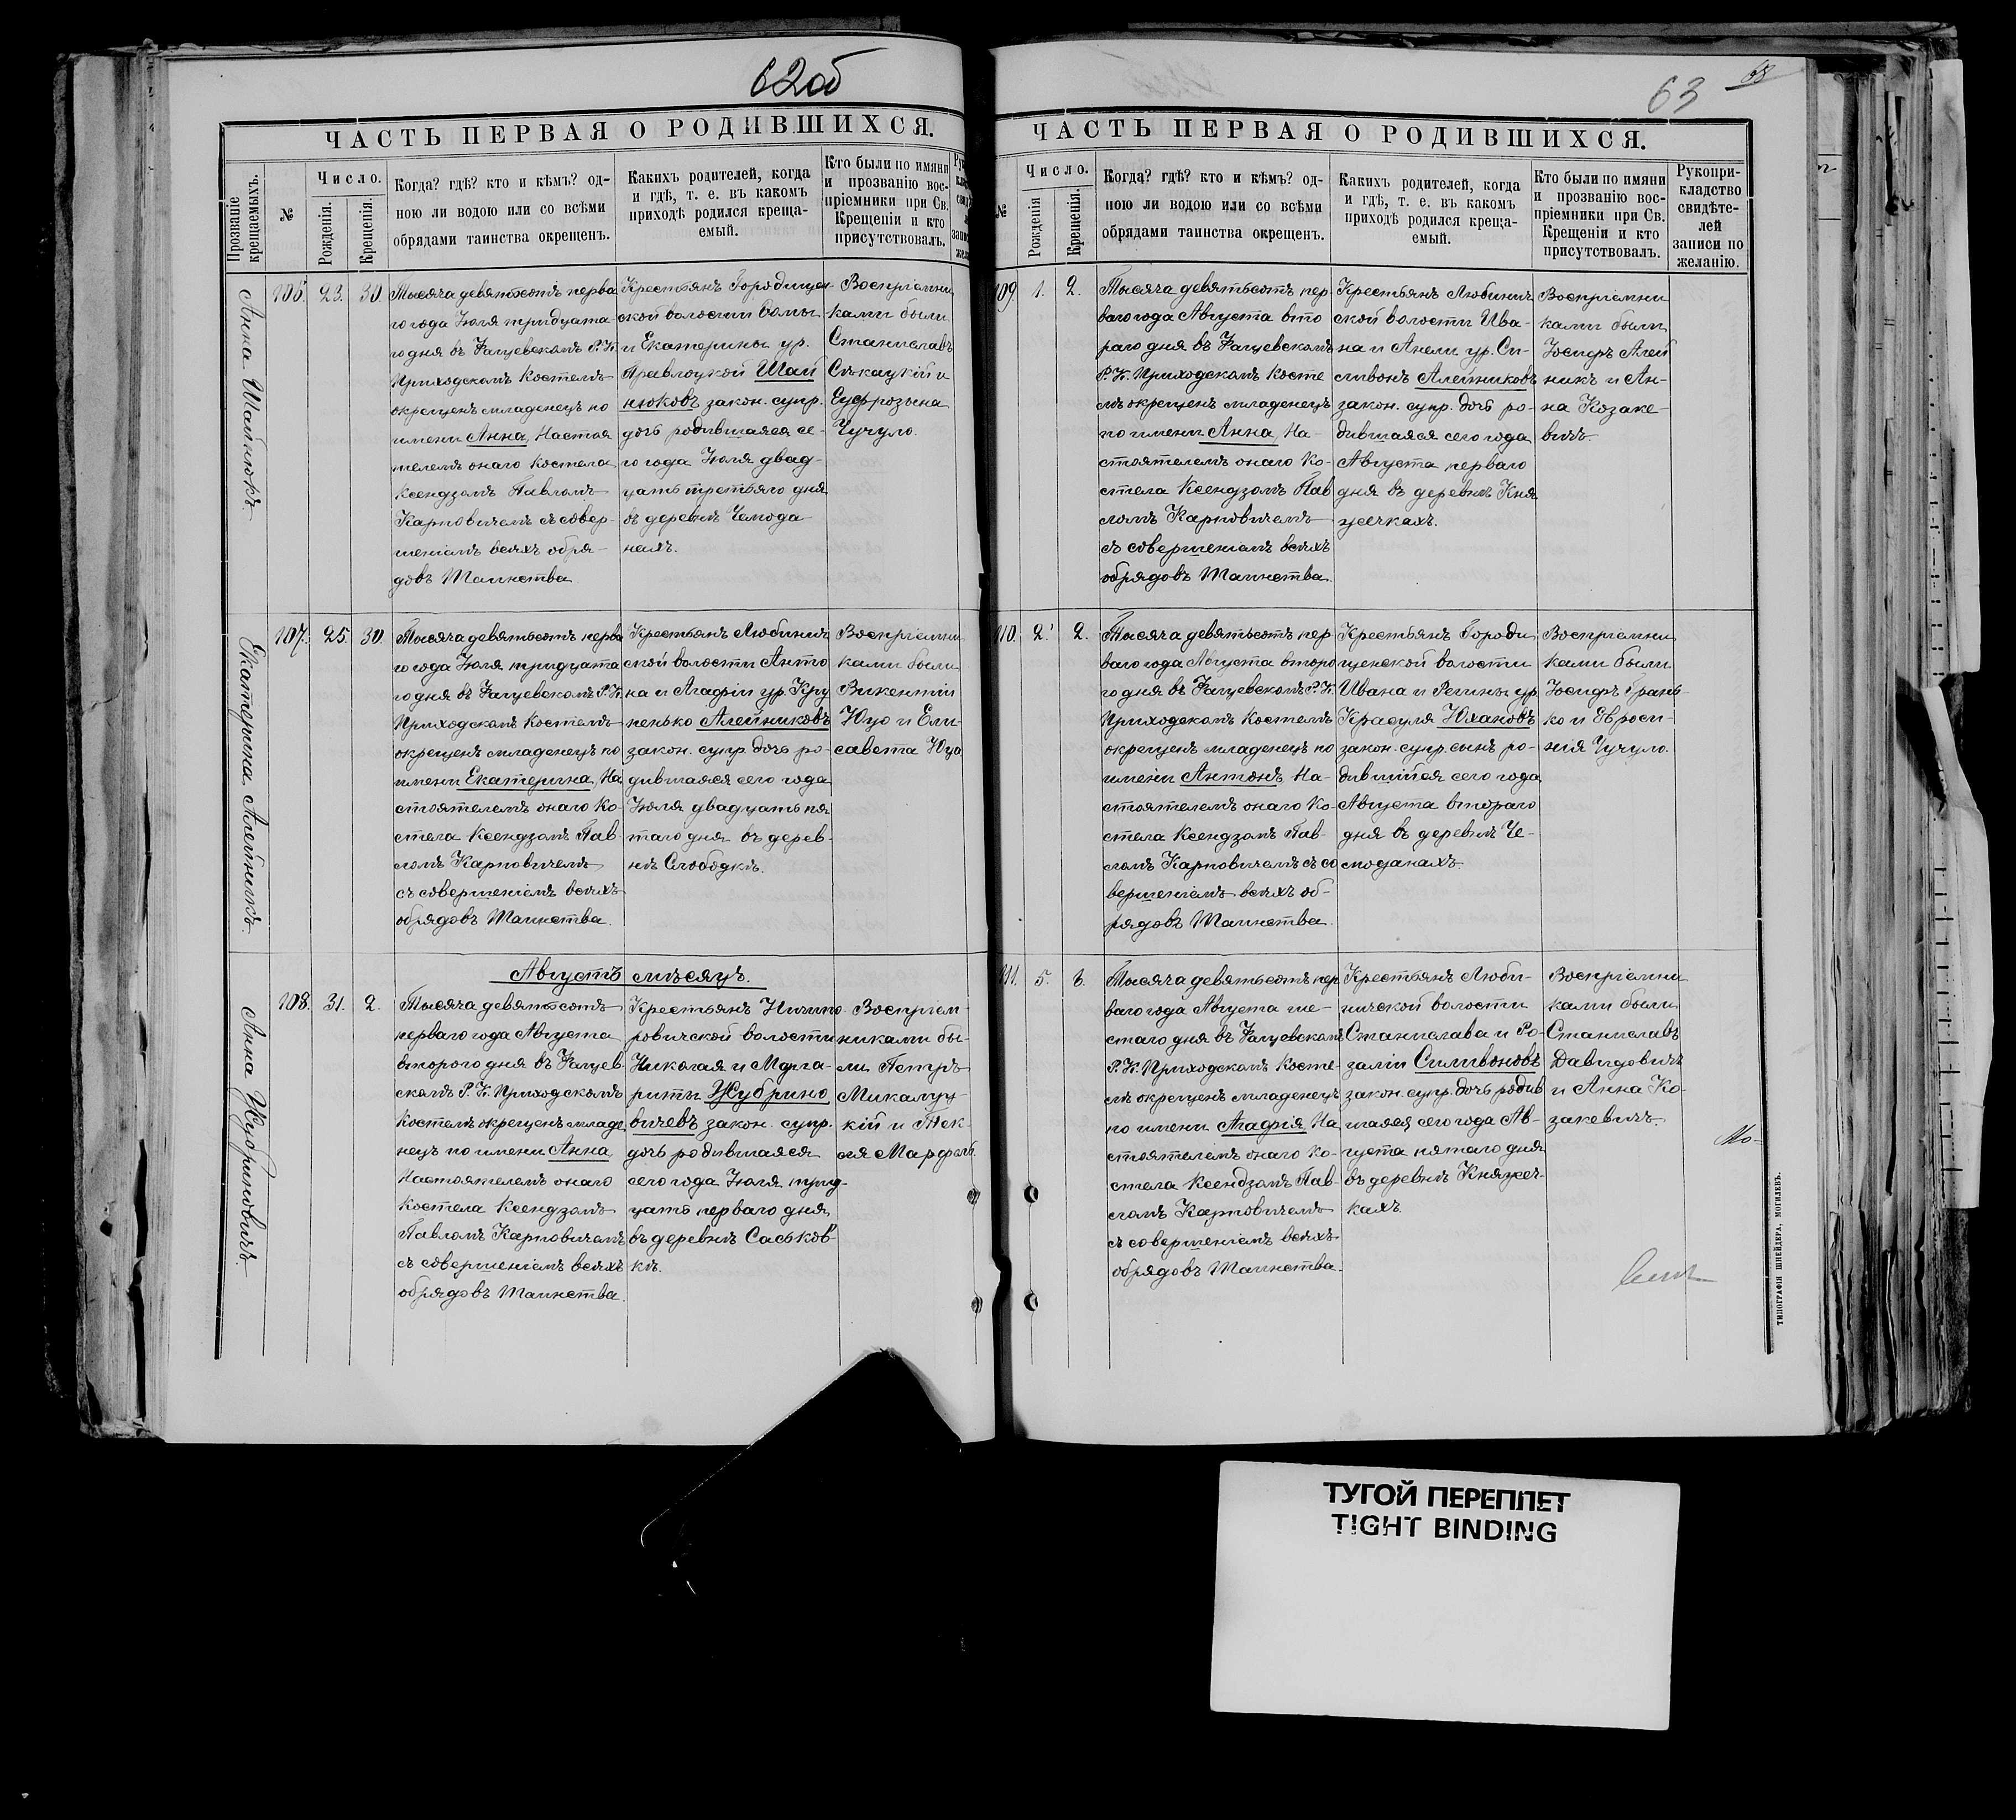 62об
ЧАСТЬ ПЕРВАЯ О РОДИВШИХСЯ.
Прозваніе крещаемыхъ.
№
Число.
Рожденія.
Крещенія.
Когда? гдѣ? кто и кѣмъ? од-
ною ли водою или со всѣми
обрядами таинства окрещенъ.
Какихъ родителей, когда
и гдѣ, т. е. въ какомъ
приходѣ родился креща-
емый.
Кто были по имяни
и прозванію вос-
пріемники при Св.
Крещеніи и кто
присутствовалъ.
Анна Шайнюкъ.
106. 23. 30.
Тысяча девятьсотъ перва
го года Іюля тридцата
го дня въ Фащевскомъ Р. К.
Приходскомъ Костелѣ
окрещенъ младенецъ по
имени Анна, Настоя
телемъ онаго Костела
Ксендзомъ Павломъ
Карповичемъ съ совер-
шеніемъ всѣхъ обря-
довъ Таинства
Крестьянъ Городищен-
ской волости Фомы
и Екатерины ур.
Шай
нюковъ закон. супр.
дочь родившаяся се-
го года Іюля двад-
цать третьяго дня
въ деревнѣ Чемода
нахъ.
Воспріемни
ками были
Станиславъ
и
Еуфрозына
Чучуло.
Екатерина Алейникъ.
107. 25. 30.
Тысяча девятьсотъ перва
го года Іюля тридцата
го дня въ Фащевскомъ Р. К.
Приходскомъ Костелѣ
окрещенъ младенецъ по
имени Екатерина, На
стоятелемъ онаго Ко-
стела Ксендзомъ Пав-
ломъ Карповичемъ
съ совершеніемъ всѣхъ
обрядовъ Таинства.
Крестьянъ Любинич
ской волости Анто
на и Агафіи ур. Кру
пенько Алейниковъ
закон. супр. дочь ро-
дившаяся сего года
Іюля двадцать пя
таго дня въ дерев-
нѣ Слободкѣ.
Воспріемни
ками были
Викентій
Юцо и Ели-
савета Юцо
Августъ мѣсяцъ.
Анна Жубриновичъ.
108. 31. 2.
Тысяча девятьсотъ
перваго года Августа
второго дня въ Фащев-
скомъ Р. К. Приходскомъ
Костелѣ окрещенъ младе
нецъ по имени Анна
Настоятелемъ онаго
Костела Ксендзомъ
Павломъ Карповичемъ
съ совершеніемъ всѣхъ
обрядовъ Таинства.
Крестьянъ
ровичской волости
Николая и Марга-
риты Жубрино
вичевъ закон. супр.
дочь родившаяся
сего года Іюля трид-
цать перваго дня
въ деревнѣ Саськов
кѣ.
Воспріем-
никами бы-
ли Петръ
Микалуц-
кій и Тек-
ля Марфель
63
ЧАСТЬ ПЕРВАЯ О РОДИВШИХСЯ.
№
Число.
Рожденія
Крещенія.
Когда? гдѣ? кто и кѣмъ? од-
ною ли водою или со всѣми
обрядами таинства окрещенъ.
Какихъ родителей, когда
и гдѣ, т. е. въ какомъ
приходѣ родился креща-
емый.
Кто были по имяни
и прозванію вос-
пріемники при Св.
Крещеніи и кто
присутствовалъ.
Рукопри-
кладство
свидѣте-
лей
записи по
желанію.
109 1. 2.
Тысяча девятьсотъ пер-
ваго года Августа вто
раго дня въ Фащевскомъ
Р. К. Приходскомъ Косте
лѣ окрещенъ младенецъ
по имени Анна, На-
стоятелемъ онаго Ко-
стела Ксендзомъ Пав
ломъ Карповичемъ
съ совершеніемъ всѣхъ
обрядовъ Таинства.
Крестьянъ Любинич
ской волости Ива-
на и Анели ур. Си-
ливонъ Алейниковъ
закон. супр. дочь ро-
дившаяся сего года
Августа перваго
дня въ деревнѣ Кня
жечкахъ.
Воспріемни
ками были
Іосифъ Алей
никъ и Ан-
на Козаке-
вичъ.
110. 2. 2.
Тысяча девятьсотъ пер-
ваго года Августа второ
го дня въ Фащевскомъ Р. К.
Приходскомъ Костелѣ
окрещенъ младенецъ по
имени Антонъ, На-
стоятелемъ онаго Ко-
стела Ксендзомъ Пав-
ломъ Карповичемъ съ со
вершеніемъ всѣхъ об-
рядовъ Таинства
Крестьянъ Городи
щенской волости
Ивана и Регины ур.
Красуля Юхановъ
закон. супр. сынъ ро-
дившійся сего года
Августа втораго
дня въ деревнѣ Че-
моданахъ.
Воспріемни
ками были
Іосифъ Франь-
ко и Евроси-
нія Чучуло.
111. 5. 6.
Тысяча девятьсотъ пер
ваго года Августа ше-
стаго дня въ Фащевскомъ
Р. К. Приходскомъ Косте-
лѣ окрещенъ младенецъ
по имени Агафія, На
стоятелемъ онаго Ко-
стела Ксендзомъ Пав-
ломъ Карповичемъ
съ совершеніемъ всѣхъ
обрядовъ Таинства.
Крестьянъ Люби-
ничской волости
Станислава и Ро-
заліи Силивоновъ
закон. супр. дочь родив
шаяся сего года Ав-
густа пятаго дня
въ деревнѣ Княжеч-
кахъ.
Воспріемни
ками были
Станиславъ
Давидовичъ
и Анна Ко-
закевичъ.
ТИПОГРАФІЯ ШНЕЙДЕРА, МОГИЛЕВЪ.
ТУГОЙ ПЕРЕПЛЕТ
TIGHT BINDING